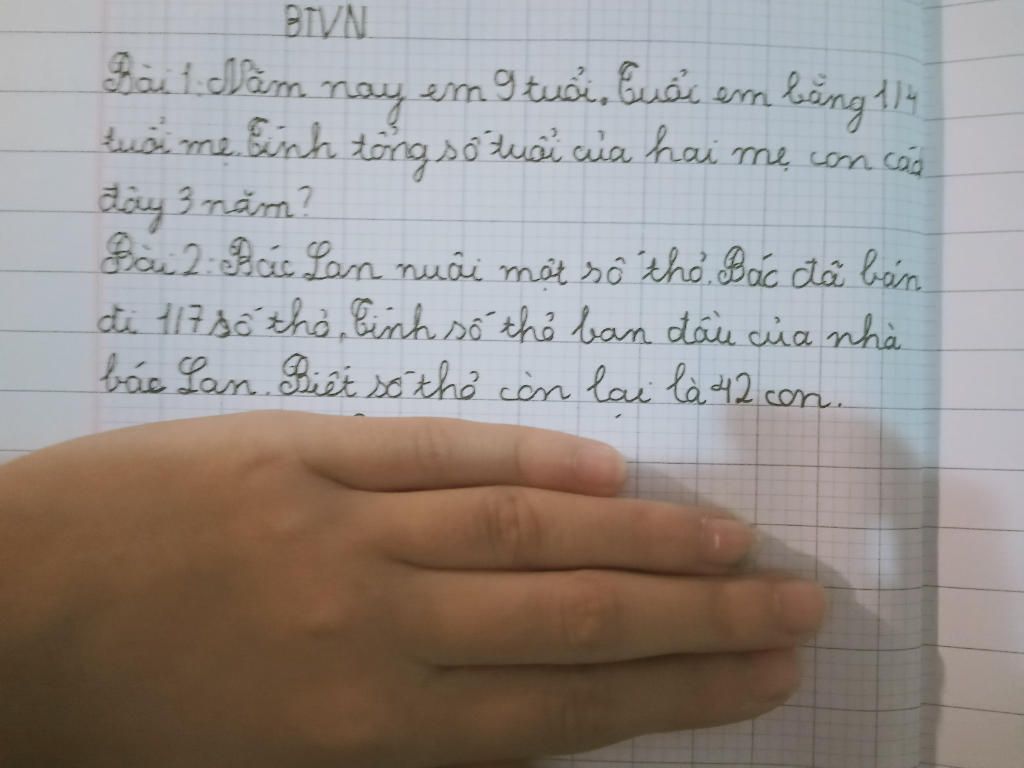 BTVN
Bài 1: Năm nay em 9 tuổi. Tuổi em bằng 1/4
tuổi mẹ. Tính tổng số tuổi của hai mẹ con cách
đây 3 năm?
Bài 2: Bác Lan nuôi một số thỏ. Bác đã bán
đi 1/7 số thỏ. Tính số thỏ ban đầu của nhà
bác Lan. Biết số thỏ còn lại là 42 con.